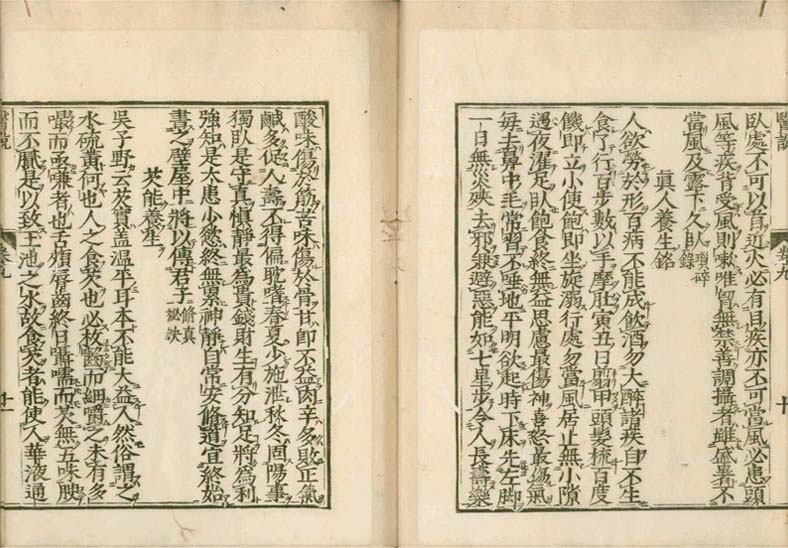 醫說 卷九 十
臥處不可以首近火必有目疾亦不可當風必患頭
風等疾背受風則嗽唯胷無禁善調攝者雖盛暑不
當風及露下久臥 瑣碎錄
眞人養生銘
人欲勞於形百病不能成飲酒勿大醉諸疾自不生
食了行百步數以手摩肚寅丑日翦甲頭髮梳百度
饑即立小便飽即坐旋溺行處勿當風居止無小隙
過夜濯足臥飽食終無益思慮最傷神喜怒最傷氣
每去鼻中毛常習不唾地平明欲起時下床先左脚
一日無災殃去邪兼避惡能如七星步令人長壽樂
酸味傷於筋苦味傷於骨甘即不益肉辛多敗正氣
鹹多促人壽不得偏耽嗜春夏少施泄秋冬固陽事
獨臥是守真慎靜最爲貴錢財生有分知足將爲利
強知是大患少慾終無累神靜自常安修道宜終始
書之壁屋中將以傳君子 修真祕訣
芡能養生
吳子野云芡實蓋溫平耳本不能大益人然俗謂之
水硫黃何也人之食芡也必枚齧而細嚼之未有多
嘬而亟嗛者也舌頰脣齒終日囁嚅而芡無五味腴
而不膩是以致玉池之水故食芡者能使人華液通
醫說 卷九 十一